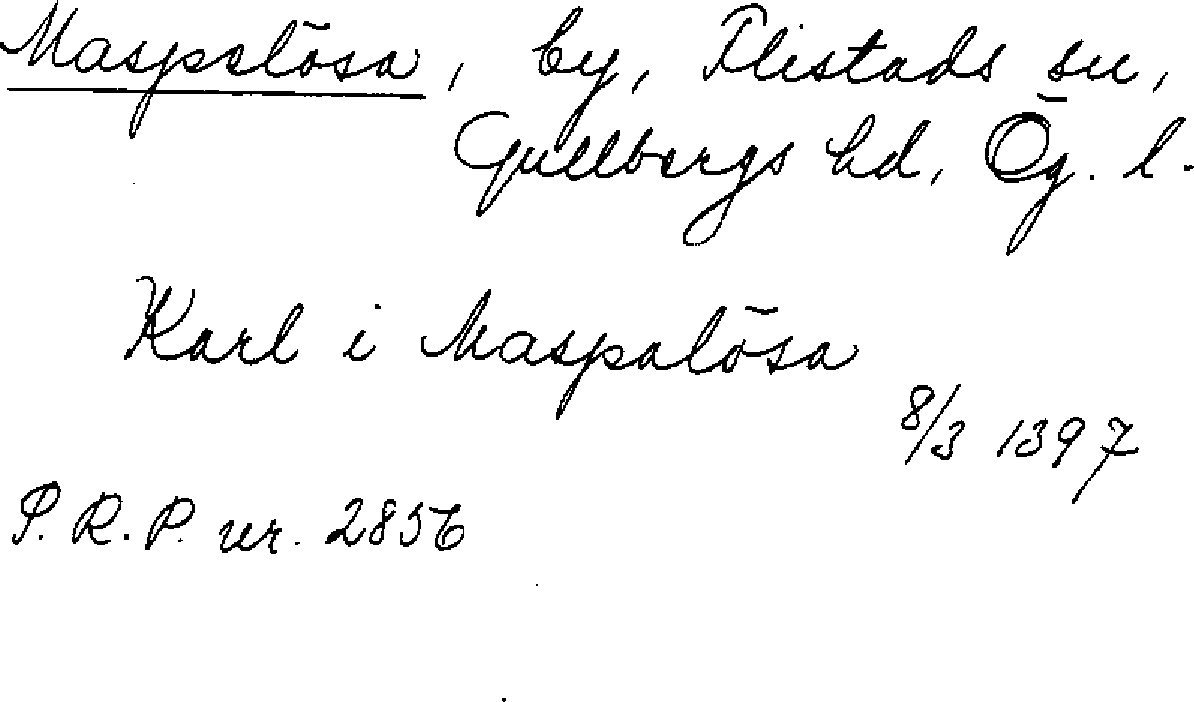 Maspelösa, by, Flistads sn,
Gullbergs hd, Ög. l.
Karl i Maspalösa
8/3 1397
P. R. P. nr. 2856